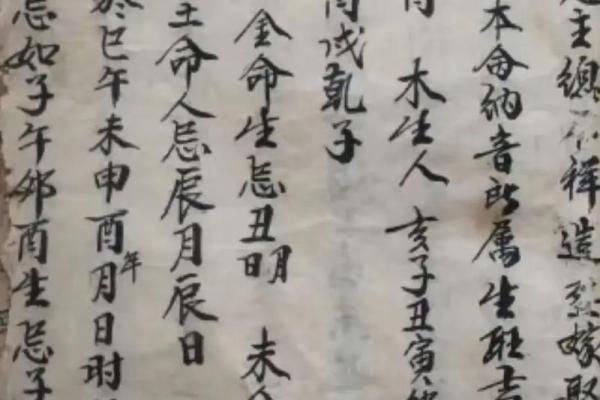 主總不祥造葬嫁娶
本命納音所属生肖吉
木生人 亥子丑寅卯
戌亥子
金命生忌丑明 未
土命人忌辰月辰日
於巳午未申酉年月日时
忌如子午卯酉生忌子